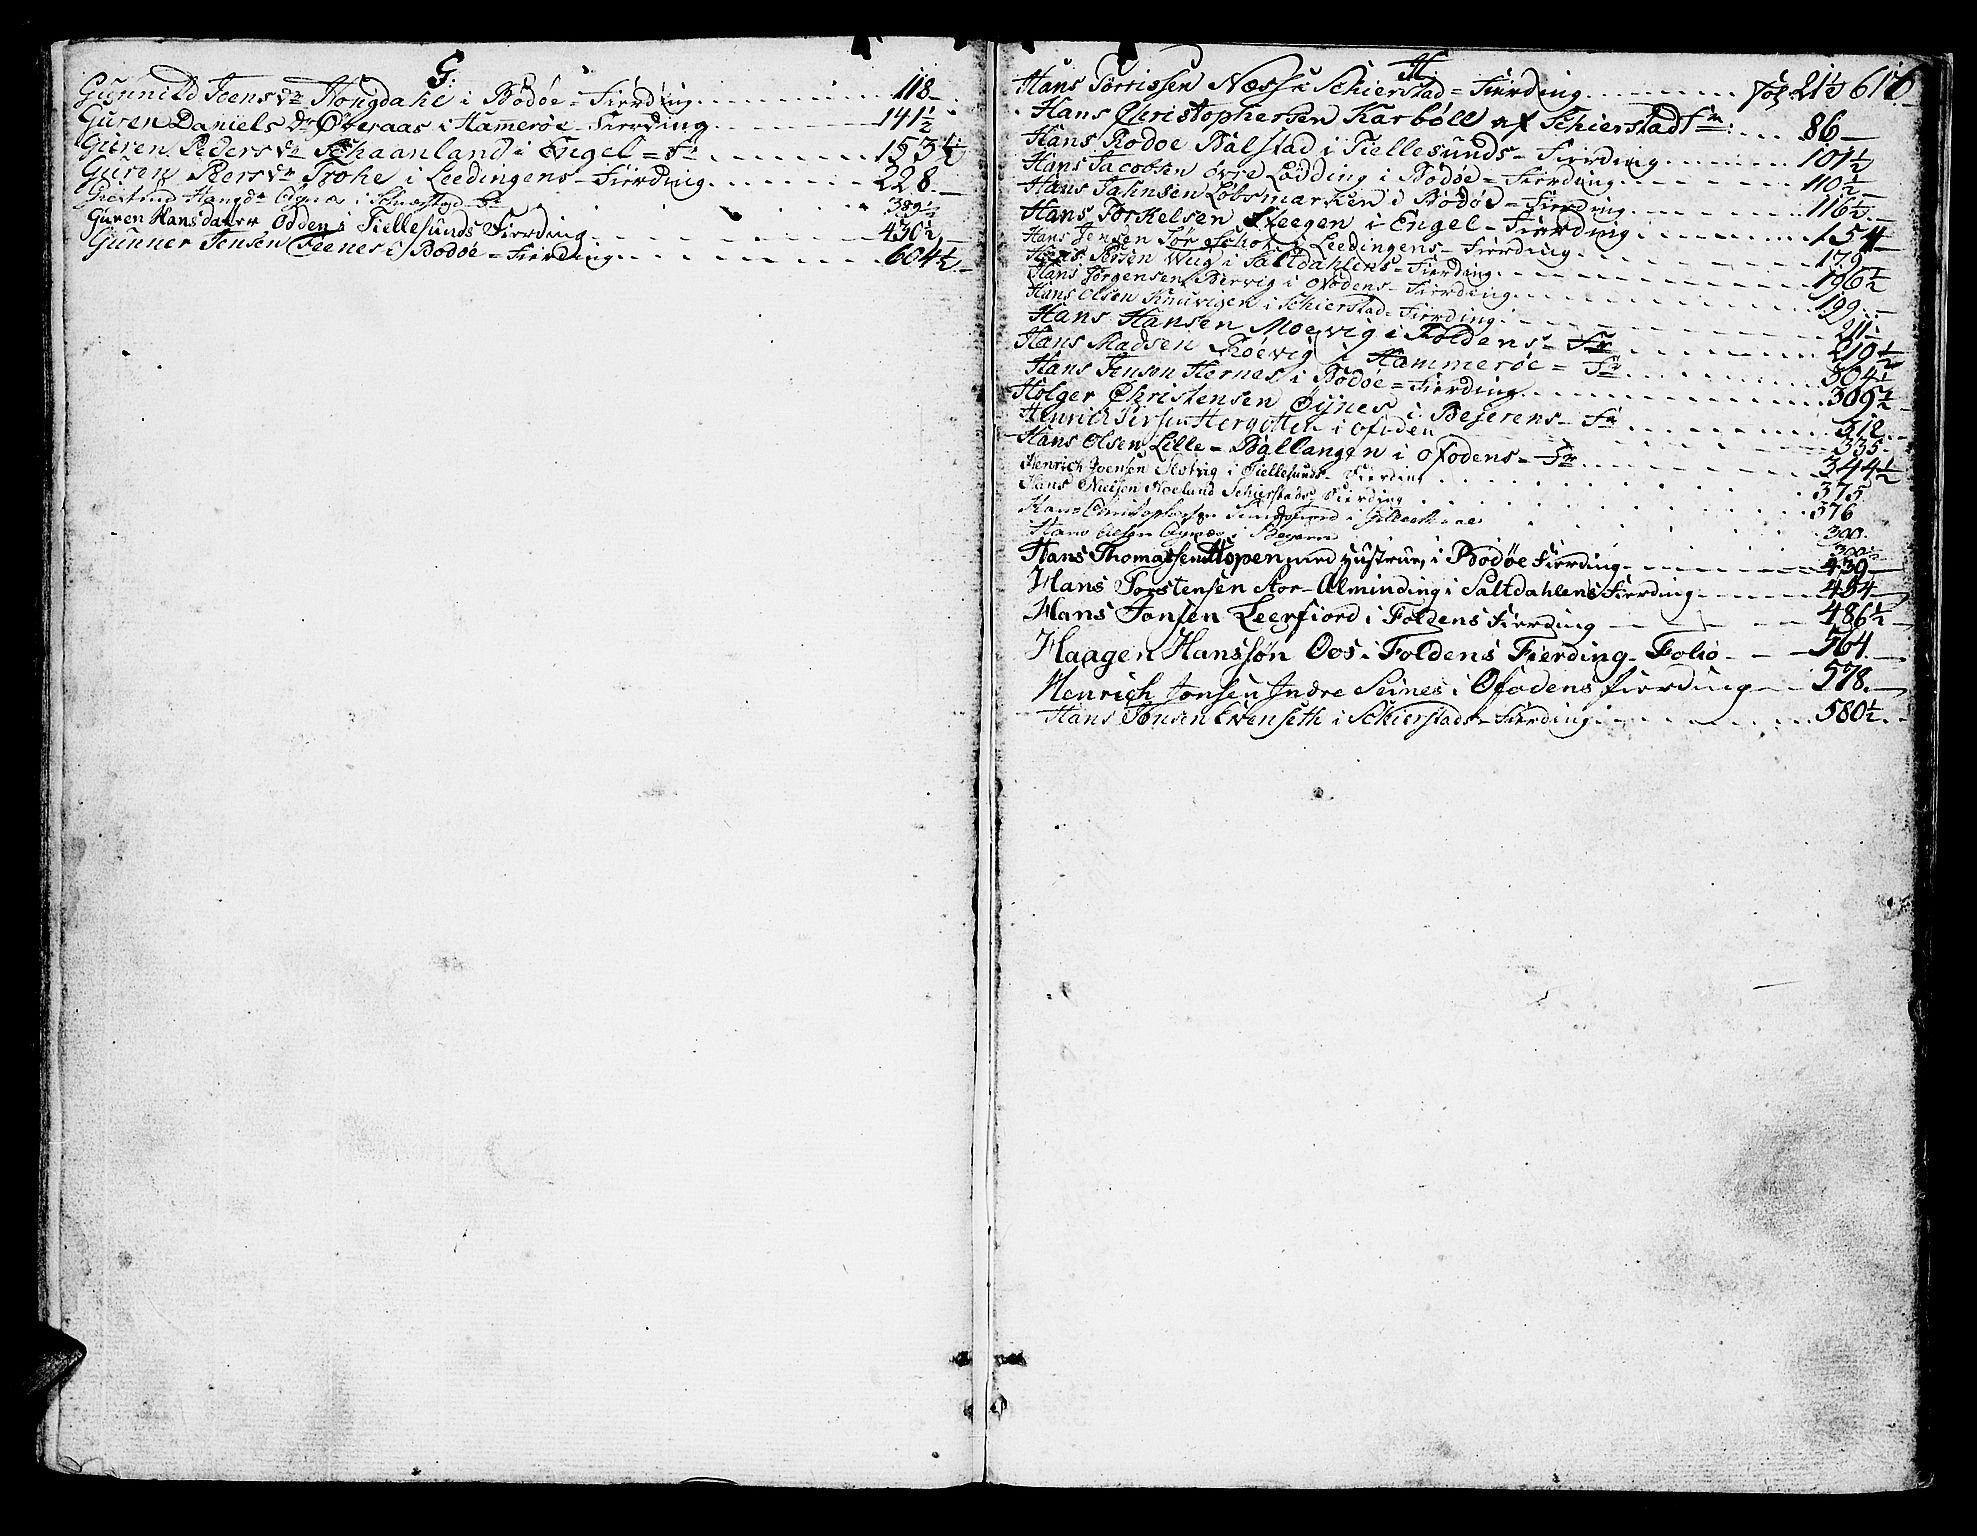 G:
Gunnild Jensdr Hongdahl i Bodøe = Fierding 118
Guren Daniels dr Øveraas i Hammerøe Fierding 141½
Guren Peders dr Schaanland i Engel = Fr 153½
Guren Peersdr Trohe i Leedingens = Fierding 228
389½
Guren Hansdatter Odden i Tiellesunds Fierding 430½
Gunner Jensen Feenes i Bodøe = Fierding 604½
H
Hans Torrissen Næss i Schierstad = Fierding fol 21½ 616
Hans Christophersen Karbøll af Schierstad Fr: 86
Hans Rodoe Balstad i Tiellesunds = Fierding 101½
Hans Jacobsen øvre Lødding i Bodøe = Fierding 110½
Hans Jahnsen Løbsmarken i Bodøe = Fierding 116½
Hans Torkelsen Steegen i Engel = Fierding 154
Hans Jensen i Leedingens = Fierding 179
Hans Persen Wiig i Saltdahlens = Fierding 196½
Hans Jørgensen Bervig i Ofodens = Fierding 199
Hans Olsen Knuvigen i Schierstad = Fierding 211
Hans Hansen Moevig i Foldens = Fr 219½
Hans Madsen Røevig i Hammerøe = Fr 304½
Hans Jensen Hernes i Bodøe = Fierding 309½
Holger Christensen Øynes i Bejerens = Fr 312
Henrich Persen Hergotten i Ofoden 335
Hans Olsen Lille = Ballangen i Ofodens = Fr 344½
Henrich Joensen Slotvig i Tiellesunds = Fierding 375
Hans Nielsen Moelund Schierstads = Fierding 376
Hans Christophersen i Gilleskaal 380
Hans Olsen i Bejeren 380½
Hans Thomassen Hopen med Hustrue, i Bodøe Fierding 439
Hans Torstensen Stor-Alminding i Saltdahlens Fierding 454
Hans Jonsen Leerfiord i Foldens Fierding 486½
Haagen Hanssøn Oos i Foldens Fierding Folio 564
Henrich Jonsen Indre Seines i Ofodens fierding 578
Hans Jonsen Evenseth i Schierstads = Fierding 580½